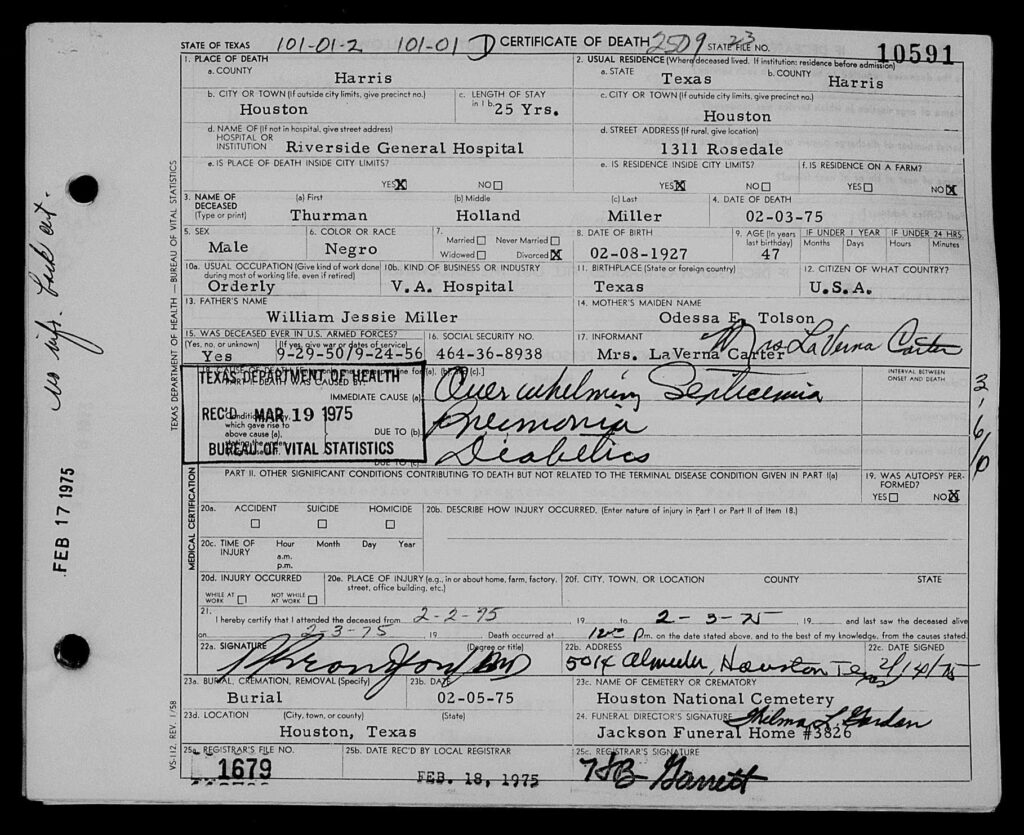 STATE OF TEXAS 101-01-2 101-01 D CERTIFICATE OF DEATH 2509 23 STATE FILE NO. 10591
1. PLACE OF DEATH
a. COUNTY
Harris
2. USUAL RESIDENCE (Where deceased lived. If institution: residence before admission)
a. STATE
Texas
b. COUNTY
Harris
b. CITY OR TOWN (If outside city limits, give precinct no.)
Houston
c. LENGTH OF STAY
in 1 b.
25 Yrs.
c. CITY OR TOWN (If outside city limits, give precinct no.)
Houston
d. NAME OF (If not in hospital, give street address)
HOSPITAL OR
INSTITUTION
Riverside General Hospital
d. STREET ADDRESS (If rural, give location)
1311 Rosedale
e. IS PLACE OF DEATH INSIDE CITY LIMITS?
YES X NO
e. IS RESIDENCE INSIDE CITY LIMITS?
YES X NO
f. IS RESIDENCE ON A FARM?
YES NO X
3. NAME OF
DECEASED
(Type or print)
(a) First
Thurman
(b) Middle
Holland
(c) Last
Miller
4. DATE OF DEATH
02-03-75
5. SEX
Male
6. COLOR OR RACE
Negro
7.
Married Never Married
Widowed Divorced X
8. DATE OF BIRTH
02-08-1927
9. AGE (In years
last birthday)
47
IF UNDER 1 YEAR
Months Days
IF UNDER 24 HRS.
Hours Minutes
10a. USUAL OCCUPATION (Give kind of work done
during most of working life, even if retired)
Orderly
10b. KIND OF BUSINESS OR INDUSTRY
V.A. Hospital
11. BIRTHPLACE (State or foreign country)
Texas
12. CITIZEN OF WHAT COUNTRY?
U.S.A.
13. FATHER'S NAME
William Jessie Miller
14. MOTHER'S MAIDEN NAME
Odessa E. Tolson
15. WAS DECEASED EVER IN U.S. ARMED FORCES?
(Yes, no, or unknown) (If yes, give war or dates of service)
Yes 9-29-50/9-24-56
16. SOCIAL SECURITY NO.
464-36-8938
17. INFORMANT
Mrs. LaVerna Carter
Mrs LaVerna Carter
TEXAS DEPARTMENT OF HEALTH
REC'D MAR 19 1975
BUREAU OF VITAL STATISTICS
IMMEDIATE CAUSE (a)
Overwhelming Septicemia
which gave rise to
above cause (a),
DUE TO (b)
Pneumonia
DUE TO (c)
Diabetics
INTERVAL BETWEEN
ONSET AND DEATH
PART II. OTHER SIGNIFICANT CONDITIONS CONTRIBUTING TO DEATH BUT NOT RELATED TO THE TERMINAL DISEASE CONDITION GIVEN IN PART I(a)
19. WAS AUTOPSY PERFORMED?
YES NO X
20a. ACCIDENT SUICIDE HOMICIDE
20b. DESCRIBE HOW INJURY OCCURRED. (Enter nature of injury in Part I or Part II of Item 18.)
20c. TIME OF
INJURY
Hour Month Day Year
a.m.
p.m.
20d. INJURY OCCURRED
WHILE AT
WORK
NOT WHILE
AT WORK
20e. PLACE OF INJURY (e.g., in or about home, farm, factory,
street, office building, etc.)
20f. CITY, TOWN, OR LOCATION COUNTY STATE
21.
I hereby certify that I attended the deceased from 2-2-75 19 to 2-3-75 19 and last saw the deceased alive
on 2-3-75 19 Death occurred at 12 P m. on the date stated above, and to the best of my knowledge, from the causes stated.
22a. SIGNATURE (Degree or title)
22b. ADDRESS
5014 Almeda, Houston Texas
22c. DATE SIGNED
2/14/75
23a. BURIAL, CREMATION, REMOVAL (Specify)
Burial
23b. DATE
02-05-75
23c. NAME OF CEMETERY OR CREMATORY
Houston National Cemetery
23d. LOCATION (City, town, or county) (State)
Houston, Texas
24. FUNERAL DIRECTOR'S SIGNATURE
Thelma L. Garden
Jackson Funeral Home #3826
25a. REGISTRAR'S FILE NO.
1679
25b. DATE REC'D BY LOCAL REGISTRAR
FEB. 18, 1975
25c. REGISTRAR'S SIGNATURE
Garrett
TEXAS DEPARTMENT OF HEALTH — BUREAU OF VITAL STATISTICS
MEDICAL CERTIFICATION
VS-112. REV. 1/58
FEB 17 1975
no info.